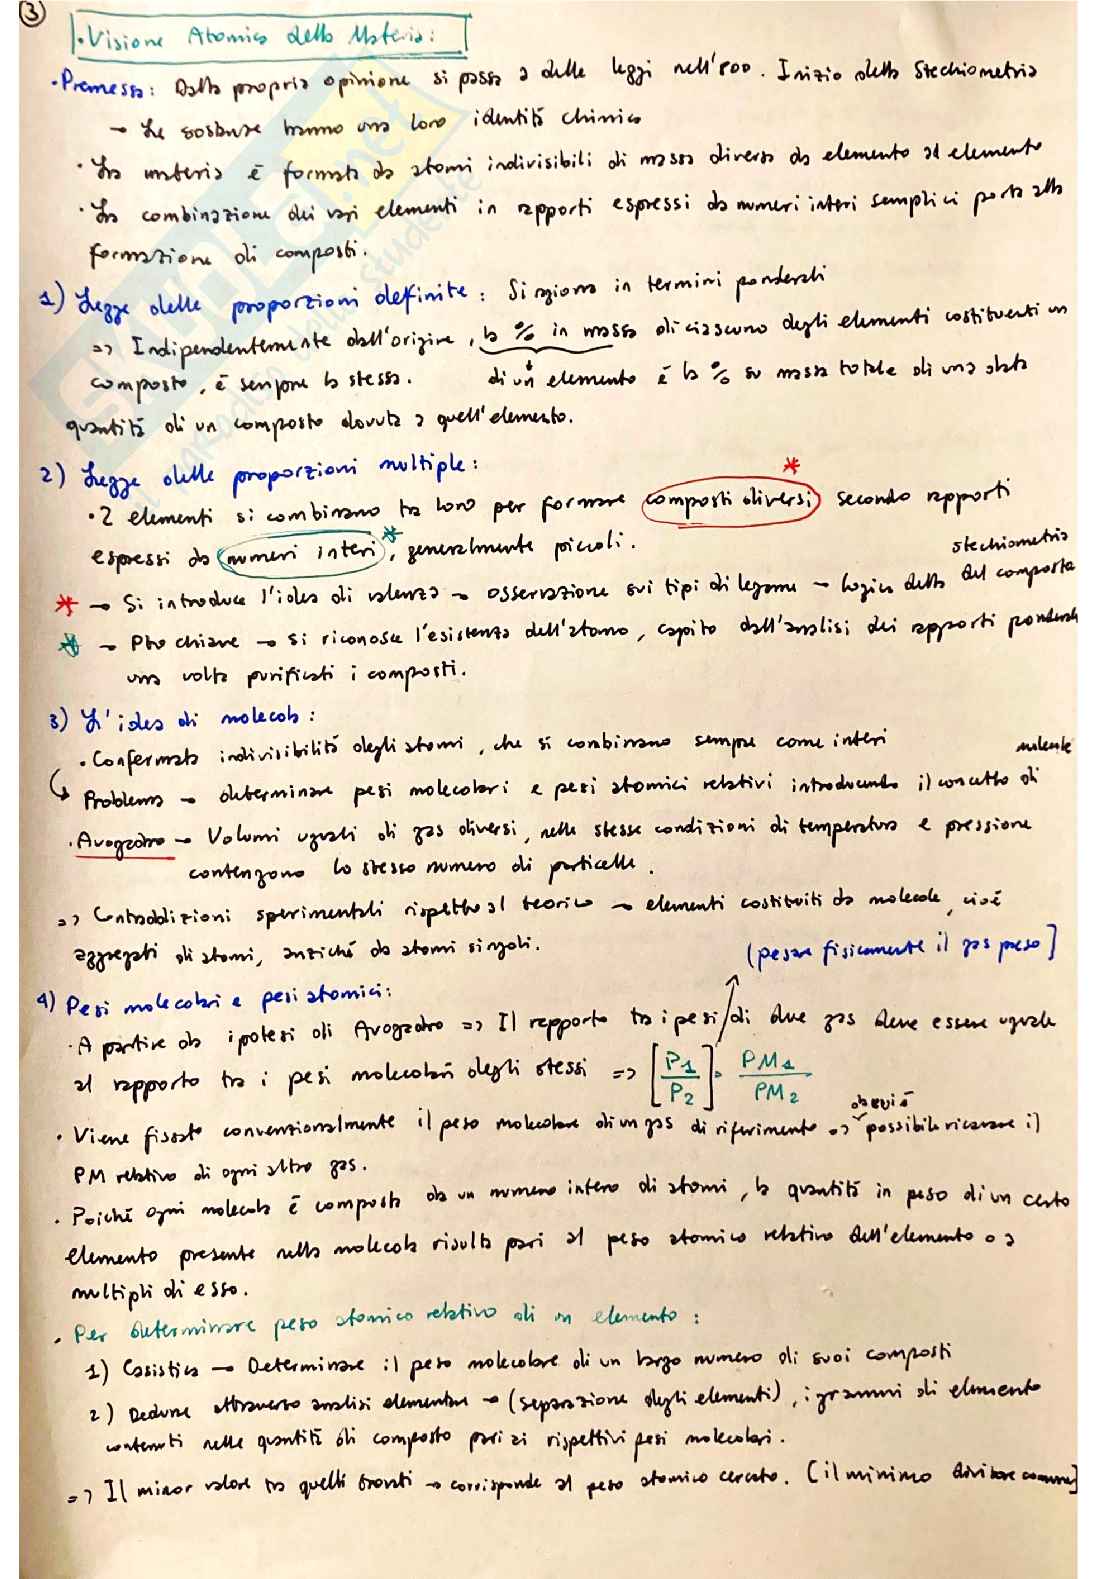 3
• Visione Atomica della Materia:
• Premessa: Dalla propria opinione si passa a delle leggi nell'800. Inizio della Stechiometria
→ Le sostanze hanno una loro identità chimica
• La materia è formata da atomi indivisibili di massa diversa da elemento ad elemento
• La combinazione dei vari elementi in rapporti espressi da numeri interi semplici porta alla
formazione di composti.
1) Legge delle proporzioni definite: Si ragiona in termini ponderali
=> Indipendentemente dall'origine, la % in massa di ciascuno degli elementi costituenti un
composto, è sempre la stessa. di un elemento è la % su massa totale di una data
quantità di un composto dovuta a quell'elemento.
2) Legge delle proporzioni multiple:
*
• 2 elementi si combinano tra loro per formare composti diversi secondo rapporti
espressi da numeri interi*, generalmente piccoli.
stechiometria
* → Si introduce l'idea di valenza → osservazione sui tipi di legame → Logica della del composto
* → Pto chiave → si riconosce l'esistenza dell'atomo, capito dall'analisi dei rapporti ponderali
una volta purificati i composti.
3) L'idea di molecola:
• Confermata indivisibilità degli atomi, che si combinano sempre come interi
molecole
Problema → determinare pesi molecolari e pesi atomici relativi introducendo il concetto di
• Avogadro → Volumi uguali di gas diversi, nelle stesse condizioni di temperatura e pressione
contengono lo stesso numero di particelle.
=> Contraddizioni sperimentali rispetto al teorico → elementi costituiti da molecole, cioè
aggregati di atomi, anziché da atomi singoli.
(pesare fisicamente il gas preso]
4) Pesi molecolari e pesi atomici:
• A partire da ipotesi di Avogadro => Il rapporto tra i pesi di due gas deve essere uguale
al rapporto tra i pesi molecolari degli stessi => [P1/P2] = PM1/PM2
• Viene fissato convenzionalmente il peso molecolare di un gas di riferimento => possibile ricavare il
PM relativo di ogni altro gas.
• Poiché ogni molecola è composta da un numero intero di atomi, la quantità in peso di un certo
elemento presente nella molecola risulta pari al peso atomico relativo dell'elemento o a
multipli di esso.
• Per determinare peso atomico relativo di un elemento:
1) Casistica → Determinare il peso molecolare di un largo numero di suoi composti
2) Dedurre attraverso analisi elementare → (separazione degli elementi), i grammi di elemento
contenuti nelle quantità di composto pari ai rispettivi pesi molecolari.
=> Il minor valore tra quelli trovati → corrisponde al peso atomico cercato. [il minimo divisore comune]